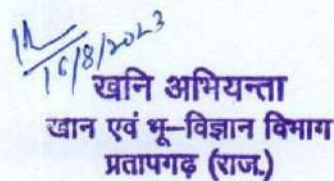 16/8/2023
खनि अभियन्ता
खान एवं भू–विज्ञान विभाग
प्रतापगढ़ (राज.)